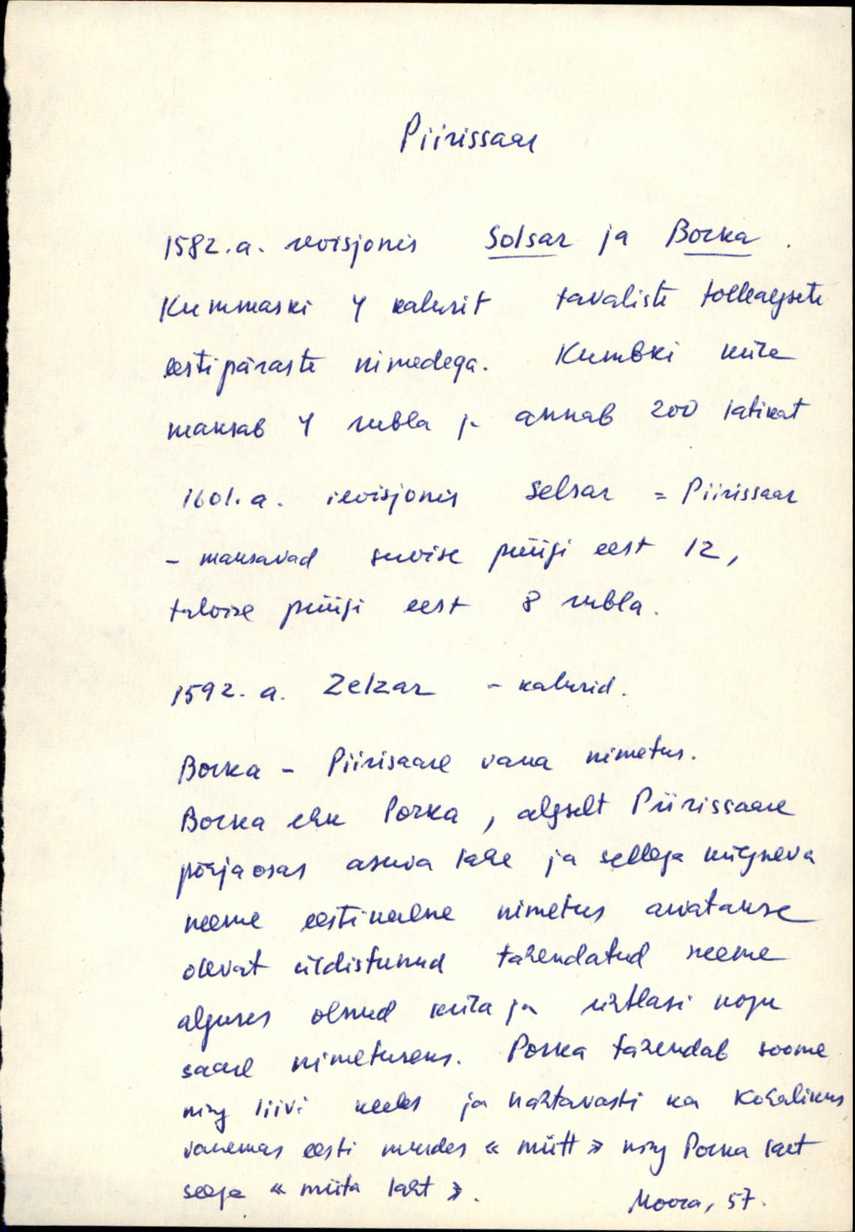 Piirissaar
1582.a. revisjonis Solsar ja Borka.
Kummaski 4 kalurit tavaliste tolleaegsete
eestipäraste nimedega. Kumbki küla
maksab 4 rubla ja annab 200 latikat
1601.a. revisjonis Selsar = Piirissaar
- maksavad suvise püügi eest 12,
talvise püügi eest 8 rubla.
1592.a. Zelzar - kalurid.
Borka - Piirisaare vana nimetus.
Borka ehk Porka, algselt Piirissaare
põhjaosas asuva lahe ja sellega külgneva
neeme eestikeelne nimetus arvatakse
olevat üldistunud tähendatud neeme
alguses olnud küla ja ühtlasi kogu
saare nimetuseks. Porka tähendab soome
ning liivi keeles ja nähtavasti ka kohalikus
vanemas eesti murdes « mütt » ning Porka laht
seega « müta laht ».
Moora, 57.